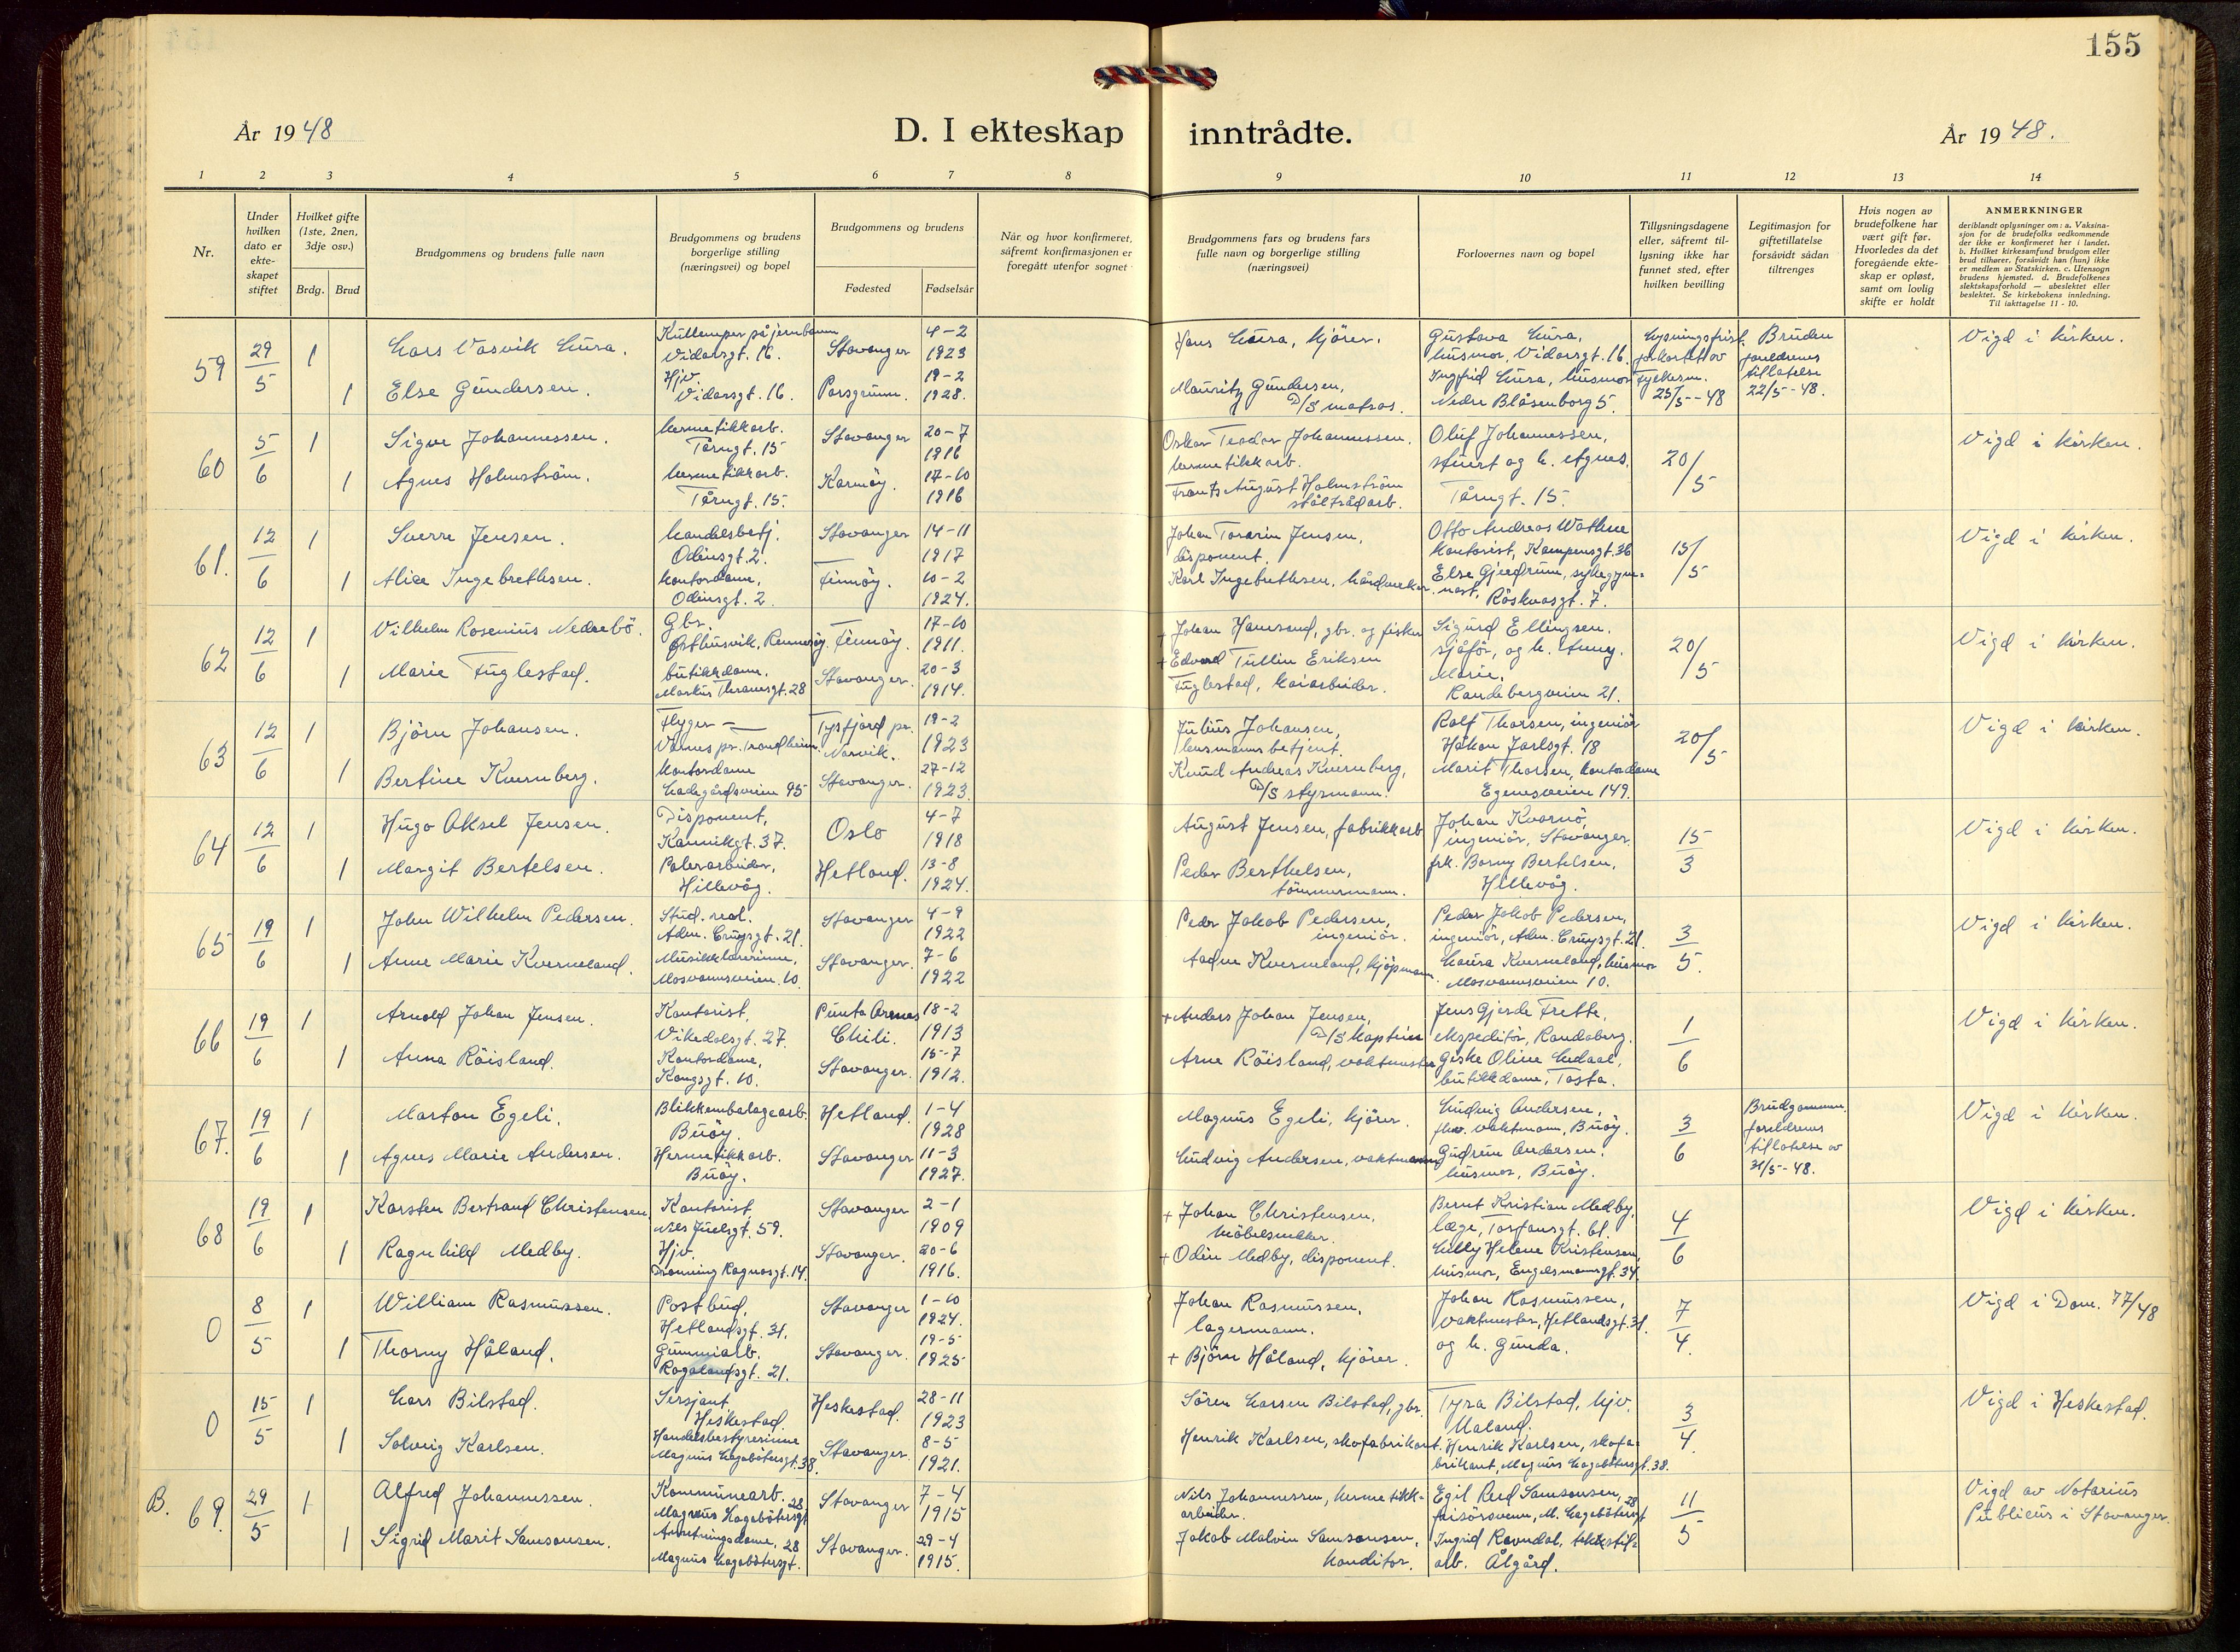 155
År 1948
D. I ekteskap inntrådte.
År 1948.
1 2 3 4 5 6 7 8 9 10 11 12 13 14
Nr.
Under hvilken dato er ekte- skapet stiftet
Hvilket gifte (1ste, 2nen, 3dje osv.)
Brdg. Brud
Brudgommens og brudens fulle navn
Brudgommens og brudens borgerlige stilling (næringsvei) og bopel
Brudgommens og brudens
Fødested Fødselsår
Når og hvor konfirmeret, såfremt konfirmasjonen er foregått utenfor sognet
Brudgommens fars og brudens fars fulle navn og borgerlige stilling (næringsvei)
Forlovernes navn og bopel
Tillysningsdagene eller, såfremt til- lysning ikke har funnet sted, efter hvilken bevilling
Legitimasjon for giftetillatelse forsåvidt sådan tiltrenges
Hvis nogen av brudefolkene har vært gift før. Hvorledes da det foregående ekte- skap er opløst, samt om lovlig skifte er holdt
ANMERKNINGER
deriblandt oplysninger om: a. Vaksina- sjon for de brudefolks vedkommende der ikke er konfirmeret her i landet. b. Hvilket kirkesamfund brudgom eller brud tilhører, forsåvidt han (hun) ikke er medlem av Statskirken. c. Utensogn brudens hjemsted. d. Brudefolkenes slektskapsforhold — ubeslektet eller beslektet. Se kirkebokens innledning. Til iakttagelse 11 - 10.
59 29/5 1 Lars Vasvik Lura. Kullemper på jernbanen Vidarsgt. 16. Stavanger 4-2 1923 Hans Laura, kjörer. Gustava Lura, husmor, Vidarsgt. 16. Lysningsfrist forkortet av Fylkesm. 25/5-48 Brudens foreldrenes tillatelse 22/5-48. Vigd i kirken.
1 Else Gundersen. Hjv. Vidarsgt. 16. Porsgrunn. 19-2 1928. Mauritz Gundersen, D/S matros. Ingfrid Lura, husmor Nedre Blåsenborg 5.
60 5/6 1 Sigve Johannessen. hermetikkarb. Tårngt. 15 Stavanger 20-7 1916 Oskar Teodor Johannessen. hermetikkarb. Oluf Johannessen, stuert og h. Agnes, Tårngt. 15. 20/5 Vigd i kirken.
1 Agnes Holmström. hermetikkarb. Tårngt. 15. Karmöy. 17-10 1916 Frantz August Holmström ståltrådarb.
61. 12/6 1 Sverre Jensen. handelsbetj. Odinsgt. 2. Stavanger 14-11 1917 Johan Tararin Jensen, disponent. Otto Andreas Wathne kontorist, Kampensgt. 36 15/5 Vigd i kirken.
1 Alice Ingebrethsen. kontordame, Odinsgt. 2. Finnöy. 10-2 1924. Karl Ingebrethsen, håndverker. Else Gjerdrum, sykegym= nast, Röskvasgt. 7.
62 12/6 1 Vilhelm Rosenius Nedrebö. Gbr. Östhusvik, Rennesöy. Finnöy. 17-10 1911. + Johan Hanasand, gbr. og fisker Sigurd Ellingsen. sjåför, og h. Anny. Marie, Randebergveien 21. 20/5 Vigd i kirken.
1 Marie Fuglestad. butikkdame. Markus Thranesgt. 28 Stavanger. 20-3 1914. + Edvard Tullin Eriksen Fuglestad, kaiarbeider.
63 12/6 1 Björn Johansen. Flyger — Værnes pr. Trondheim. Tysfjord pr. Narvik. 19-2 1923 Julius Johansen, lensmannsbetjent. Rolf Thorsen, ingeniör Håkon Jarlsgt. 18 20/5 Vigd i kirken.
1 Bertine Kvernberg. kontordame Ladegårdsveien 95 Stavanger. 27-12 1923. Knud Andreas Kvernberg, D/S styrmann. Marit Thorsen, kontordame Egenesveien 149.
64 12/6 1 Hugo Aksel Jensen. Disponent, Kannikgt. 37. Oslo 4-7 1918 August Jensen, fabrikkarb Johan Kvarnö, ingeniör, Stavanger. 15/3 Vigd i kirken.
1 Margit Bertelsen. Polerarbeider, Hillevåg. Hetland. 13-8 1924. Peder Berthelsen, tömmermann. frk. Borny Bertelsen, Hillevåg.
65 19/6 1 John Wilhelm Pedersen. Stud. real. Adm. Cruysgt. 21. Stavanger 4-9 1922 Peder Jakob Pedersen, ingeniör. Peder Jakob Pedersen, ingeniör, Adm. Cruysgt. 21. 3/5. Vigd i kirken.
1 Anne Marie Kverneland. Musikklærerinne, Mosvannsveien. 10. Stavanger. 7-6 1922 Aadne Kverneland, kjöpmann. Laura Kverneland, husmor Mosvannsveien 10.
66 19/6 1 Arnold Johan Jensen. Kontorist, Vikedalsgt. 27. Punta Arenas Chili. 18-2 1913 + Anders Johan Jensen, D/S kaptein Jens Gjerde Frette, ekspeditör, Randaberg. 1/6 Vigd i kirken.
1 Anna Röisland. Kontordame, Kongsgt. 10. Stavanger. 15-7 1912. Arne Röisland, vaktmester Giske Oline Ledaal, butikkdame, Tasta.
67. 19/6 1 Marton Egeli. Blikkemballagearb. Buöy. Hetland. 1-4 1928 Magnus Egeli, kjörer. Ludvig Andersen, fhv. vaktmann, Buöy. 3/6 Brudgommens foreldrenes tillatelse av 31/5-48. Vigd i kirken.
1 Agnes Marie Andersen. Hermetikkarb. Buöy. Stavanger 11-3 1927. Ludvig Andersen, vaktmann Gudrun Andersen. husmor, Buöy.
68 19/6 1 Karsten Bertrand Christensen. Kontorist, Niels Juelsgt. 59. Stavanger 2-1 1909 + Johan Christensen, möbelsnekker. Bernt Kristian Medby, læge, Torfæusgt. 61. 4/6 Vigd i kirken.
1 Ragnhild Medby. Hjv. Dronning Ragnasgt. 14. Stavanger. 20-6 1916. + Odin Medby, disponent. Lilly Helene Kristensen, husmor, Engelsmannsgt. 34.
0 8/5 1 William Rasmussen. Postbud, Hetlandsgt. 31. Stavanger 1-10 1924. Johan Rasmussen, lagermann. Johan Rasmussen, vaktmester, Hetlandsgt. 31. og h. Gunda. 7/4. Vigd i Dom. 77/48
1 Thorny Håland. Gummiarb. Rogalandsgt. 21. Stavanger. 19-5 1925 + Björn Håland, kjörer.
0 15/5 1 Lars Bilstad. Sersjant Heskestad. Heskestad. 28-11 1923 Sören Larsen Bilstad, gbr. Tyra Bilstad, hjv. Ualand. 3/4. Vigd i Heskestad.
1 Solveig Karlsen. Handelsbestyrerinne Magnus Lagabötersgt. 38. Stavanger. 8-5 1921. Henrik Karlsen, skofabrikant. Henrik Karlsen, skofa= brikant, Magnus Lagabötersgt. 38.
B. 69. 29/5 1 Alfred Johannessen. Kommunearb. Magnus Lagabötersgt 28 Stavanger 7-4 1915 Nils Johannessen, hermetikk= arbeider. Egil Reed Samsonsen, frisörsvenn, M. Lagabötersgt 28 11/5 Vigd av Notarius Publicus i Stavanger.
1 Sigrid Marit Samsonsen. Anretningsdame, Magnus Lagabötersgt. 28 Stavanger. 29-4 1915. Jakob Malvin Samsonsen, konditor. Ingrid Ravndal, tekstil= arb. Ålgård.